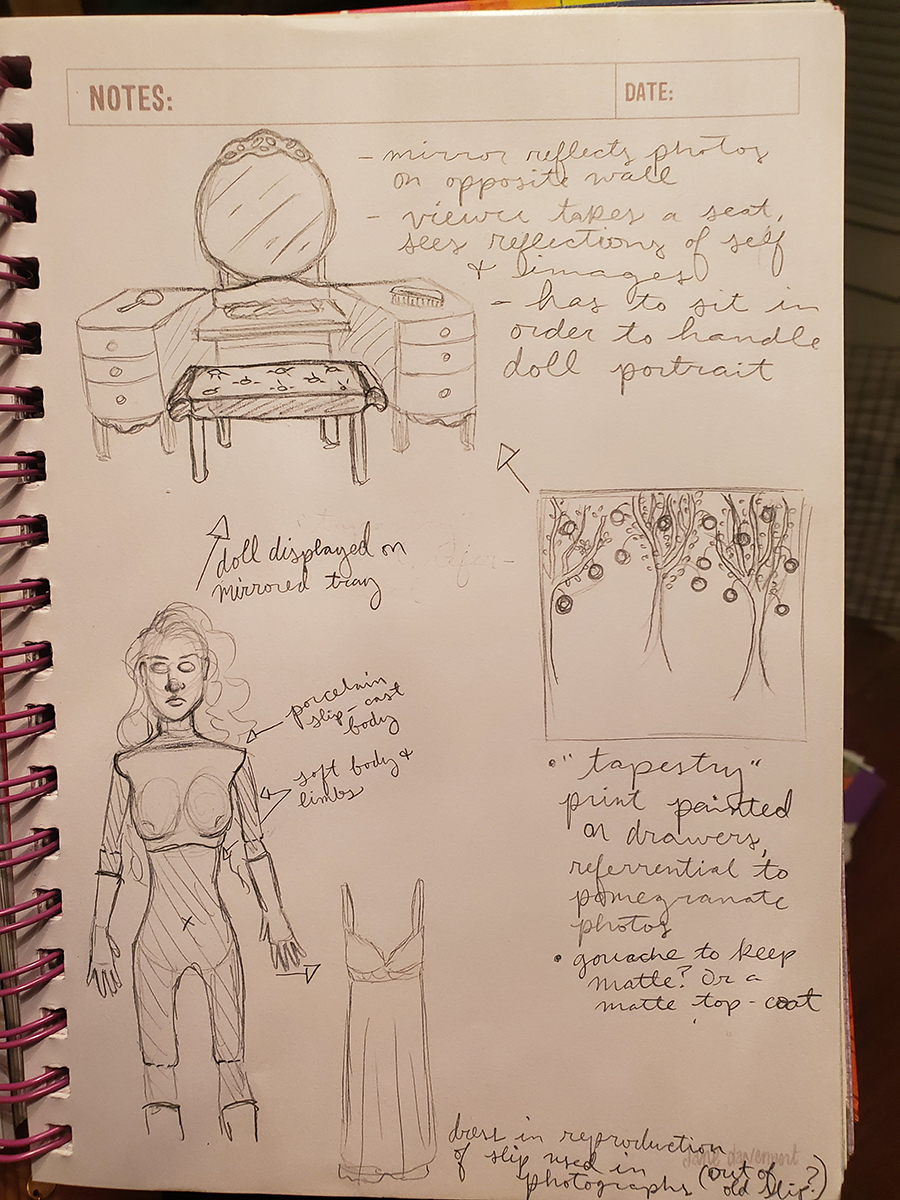 NOTES:
DATE:
- mirror reflects photos
on opposite wall
- viewer takes a seat,
sees reflections of self
& images
- has to sit in
order to handle
doll portrait
doll displayed on
mirrored tray
porcelain
slip-cast
body
soft body &
limbs
• "tapestry"
print painted
on drawers,
referrential to
pomegranate
photos
• gouache to keep
matte? Or a
matte top-coat
dress in reproduction
of slip used in
photographs (out of
old slip?)
jane davenport